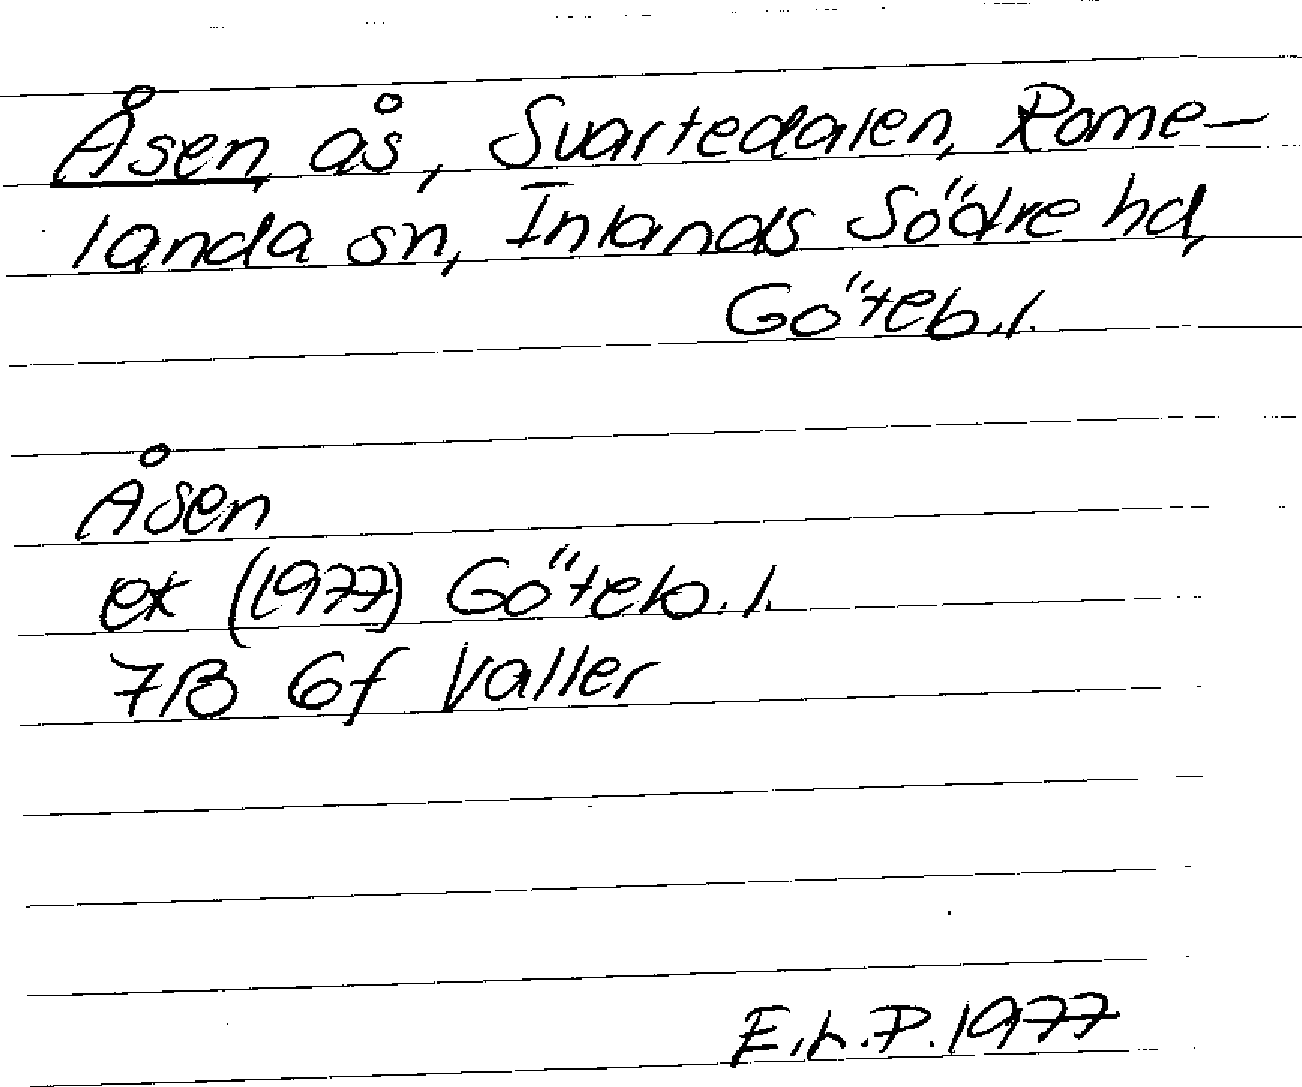 Åsen, ås, Svartedalen, Rome-
landa sn, Inlands Södre hd,
Göteb.l.
Åsen
ek (1977) Göteb.l.
7B 6f Valler
E.L.P. 1977